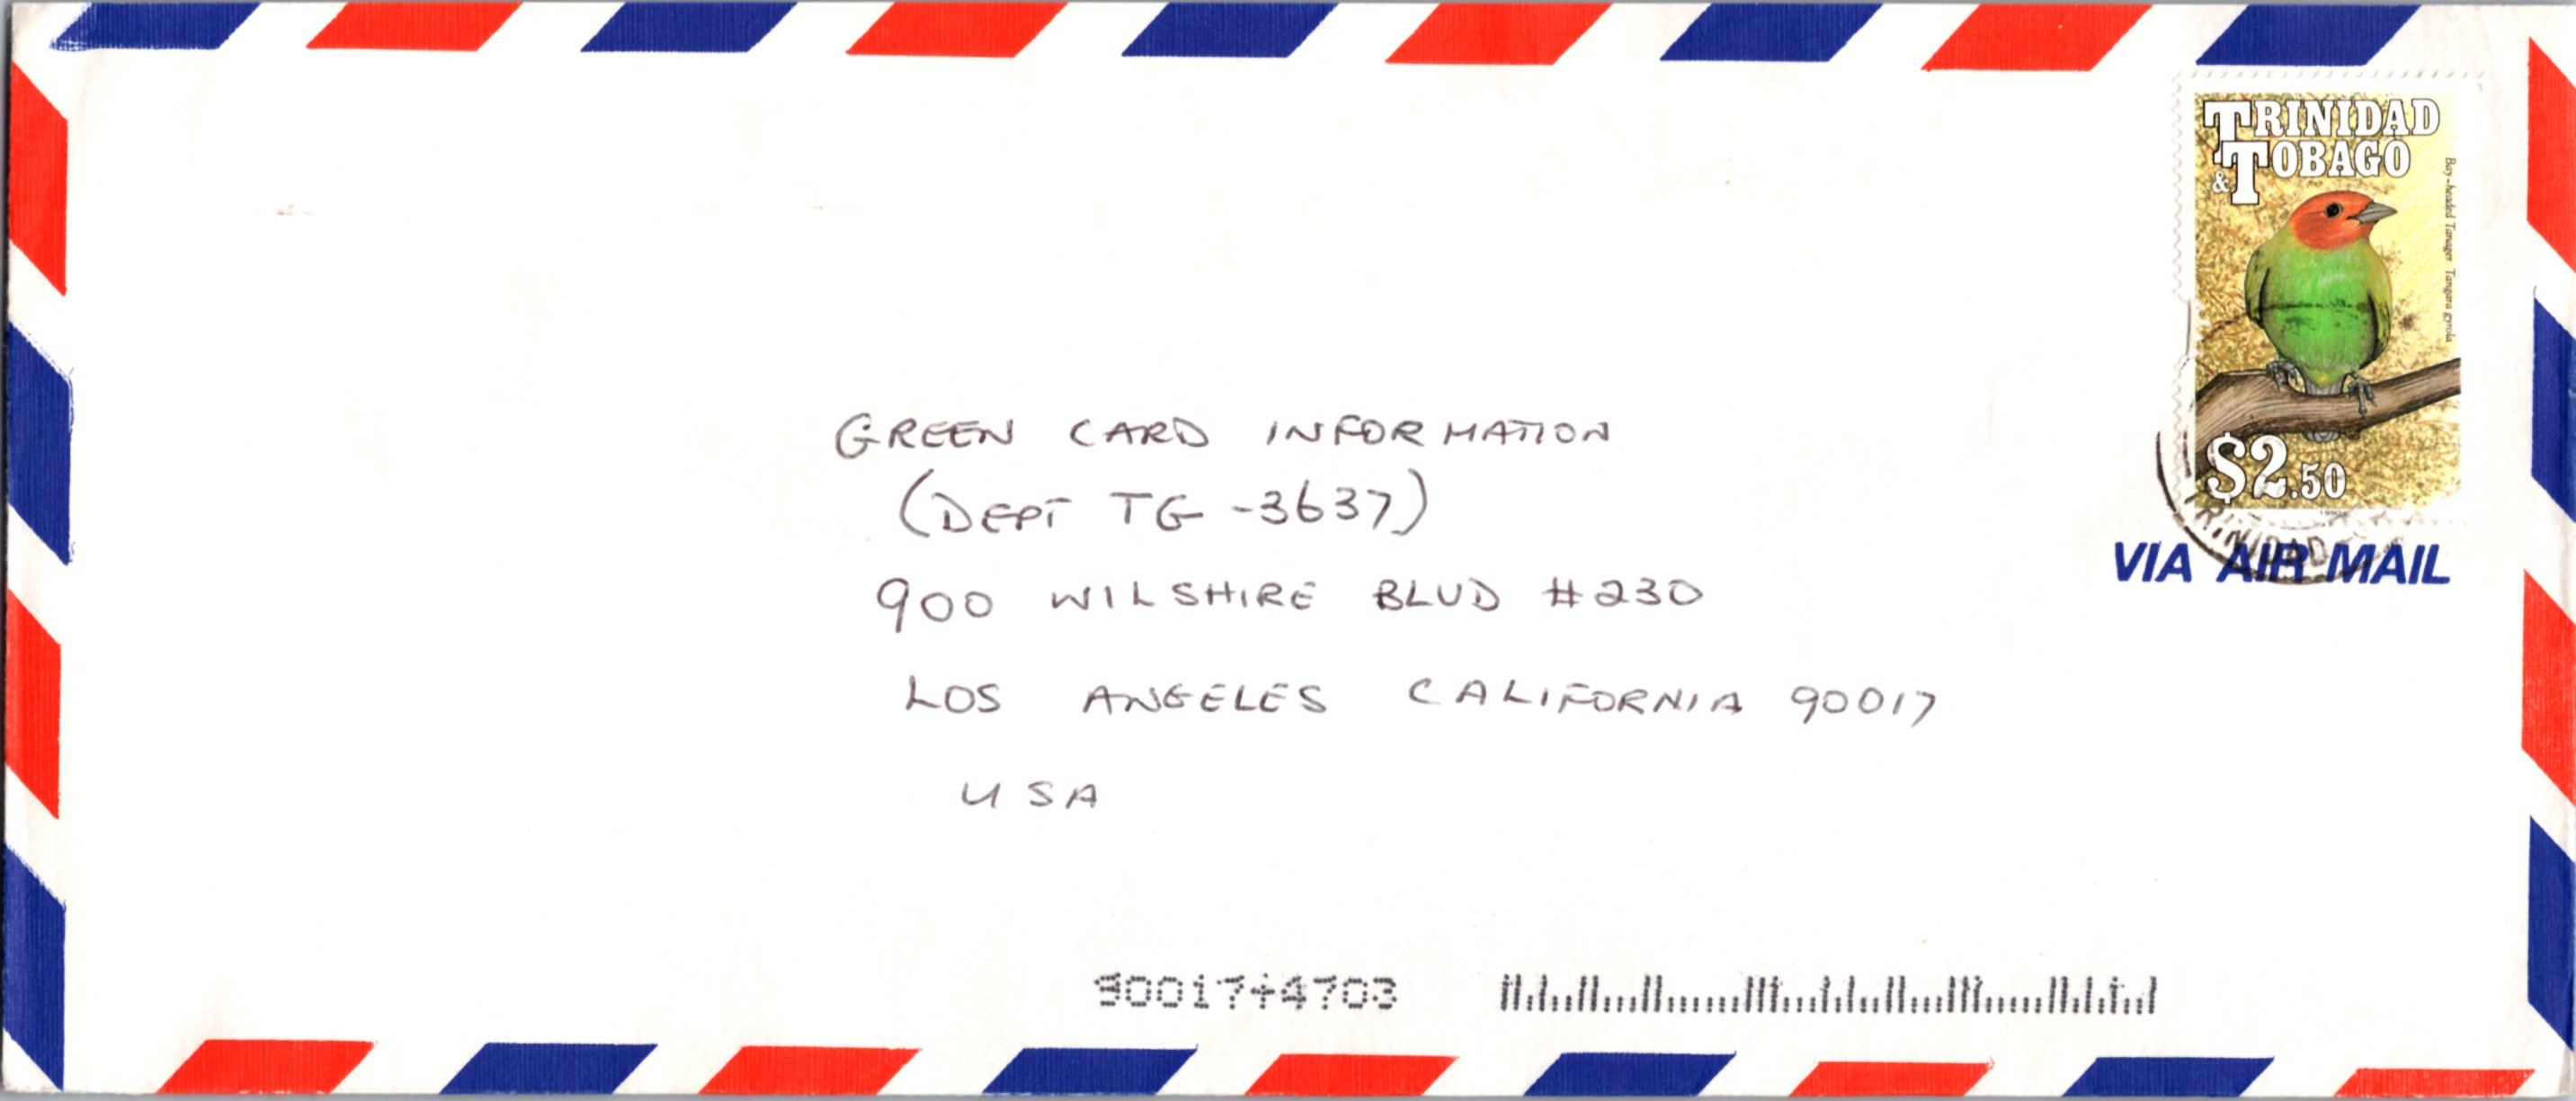 TRINIDAD
& TOBAGO
Bay-headed Tanager Tangara gyrola
$2.50
1990
TRINIDAD
VIA AIR MAIL
GREEN CARD INFORMATION
(DEPT TG -3637)
900 WILSHIRE BLUD #230
LOS ANGELES CALIFORNIA 90017
USA
90017+4703